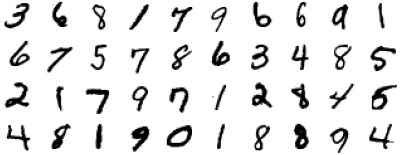 3 6 8 1 7 9 6 6 9 1
6 7 5 7 8 6 3 4 8 5
2 1 7 9 7 1 2 8 4 5
4 8 1 9 0 1 8 8 9 4